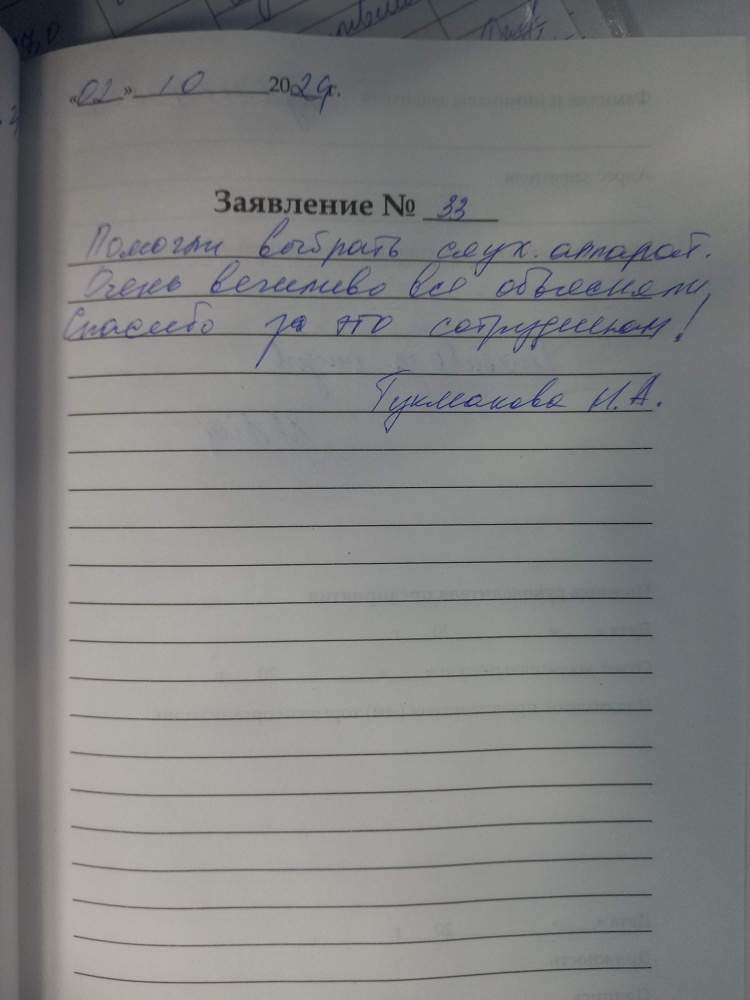 «02» 10 2024г.
Заявление № 33
Помогли выбрать слух. аппарат.
Очень вежливо все объясняли,
Спасибо за это сотрудникам!
Тукмакова Н.А.